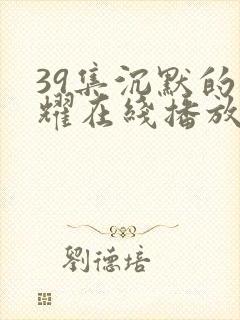 39集沉默的
耀在綫播放
劉德培